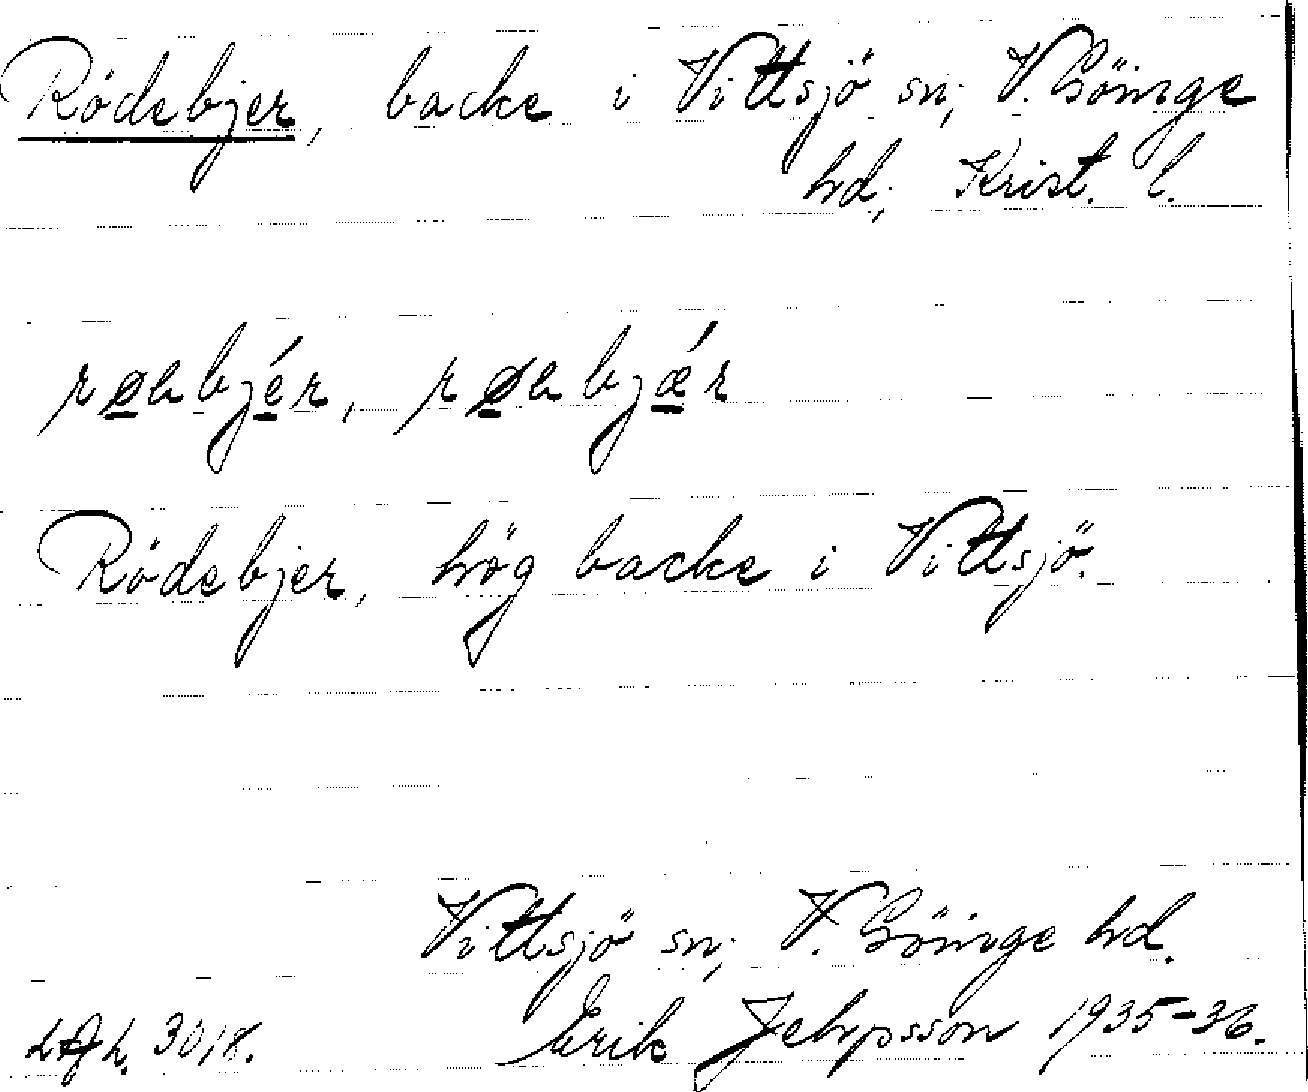 Rödebjer, backe i Vittsjö sn; V. Göinge
hd; Krist. l.
Rödebjer, hög backe i Vittsjö.
Vittsjö sn; V. Göinge hd.
3018. Erik 1935-36.